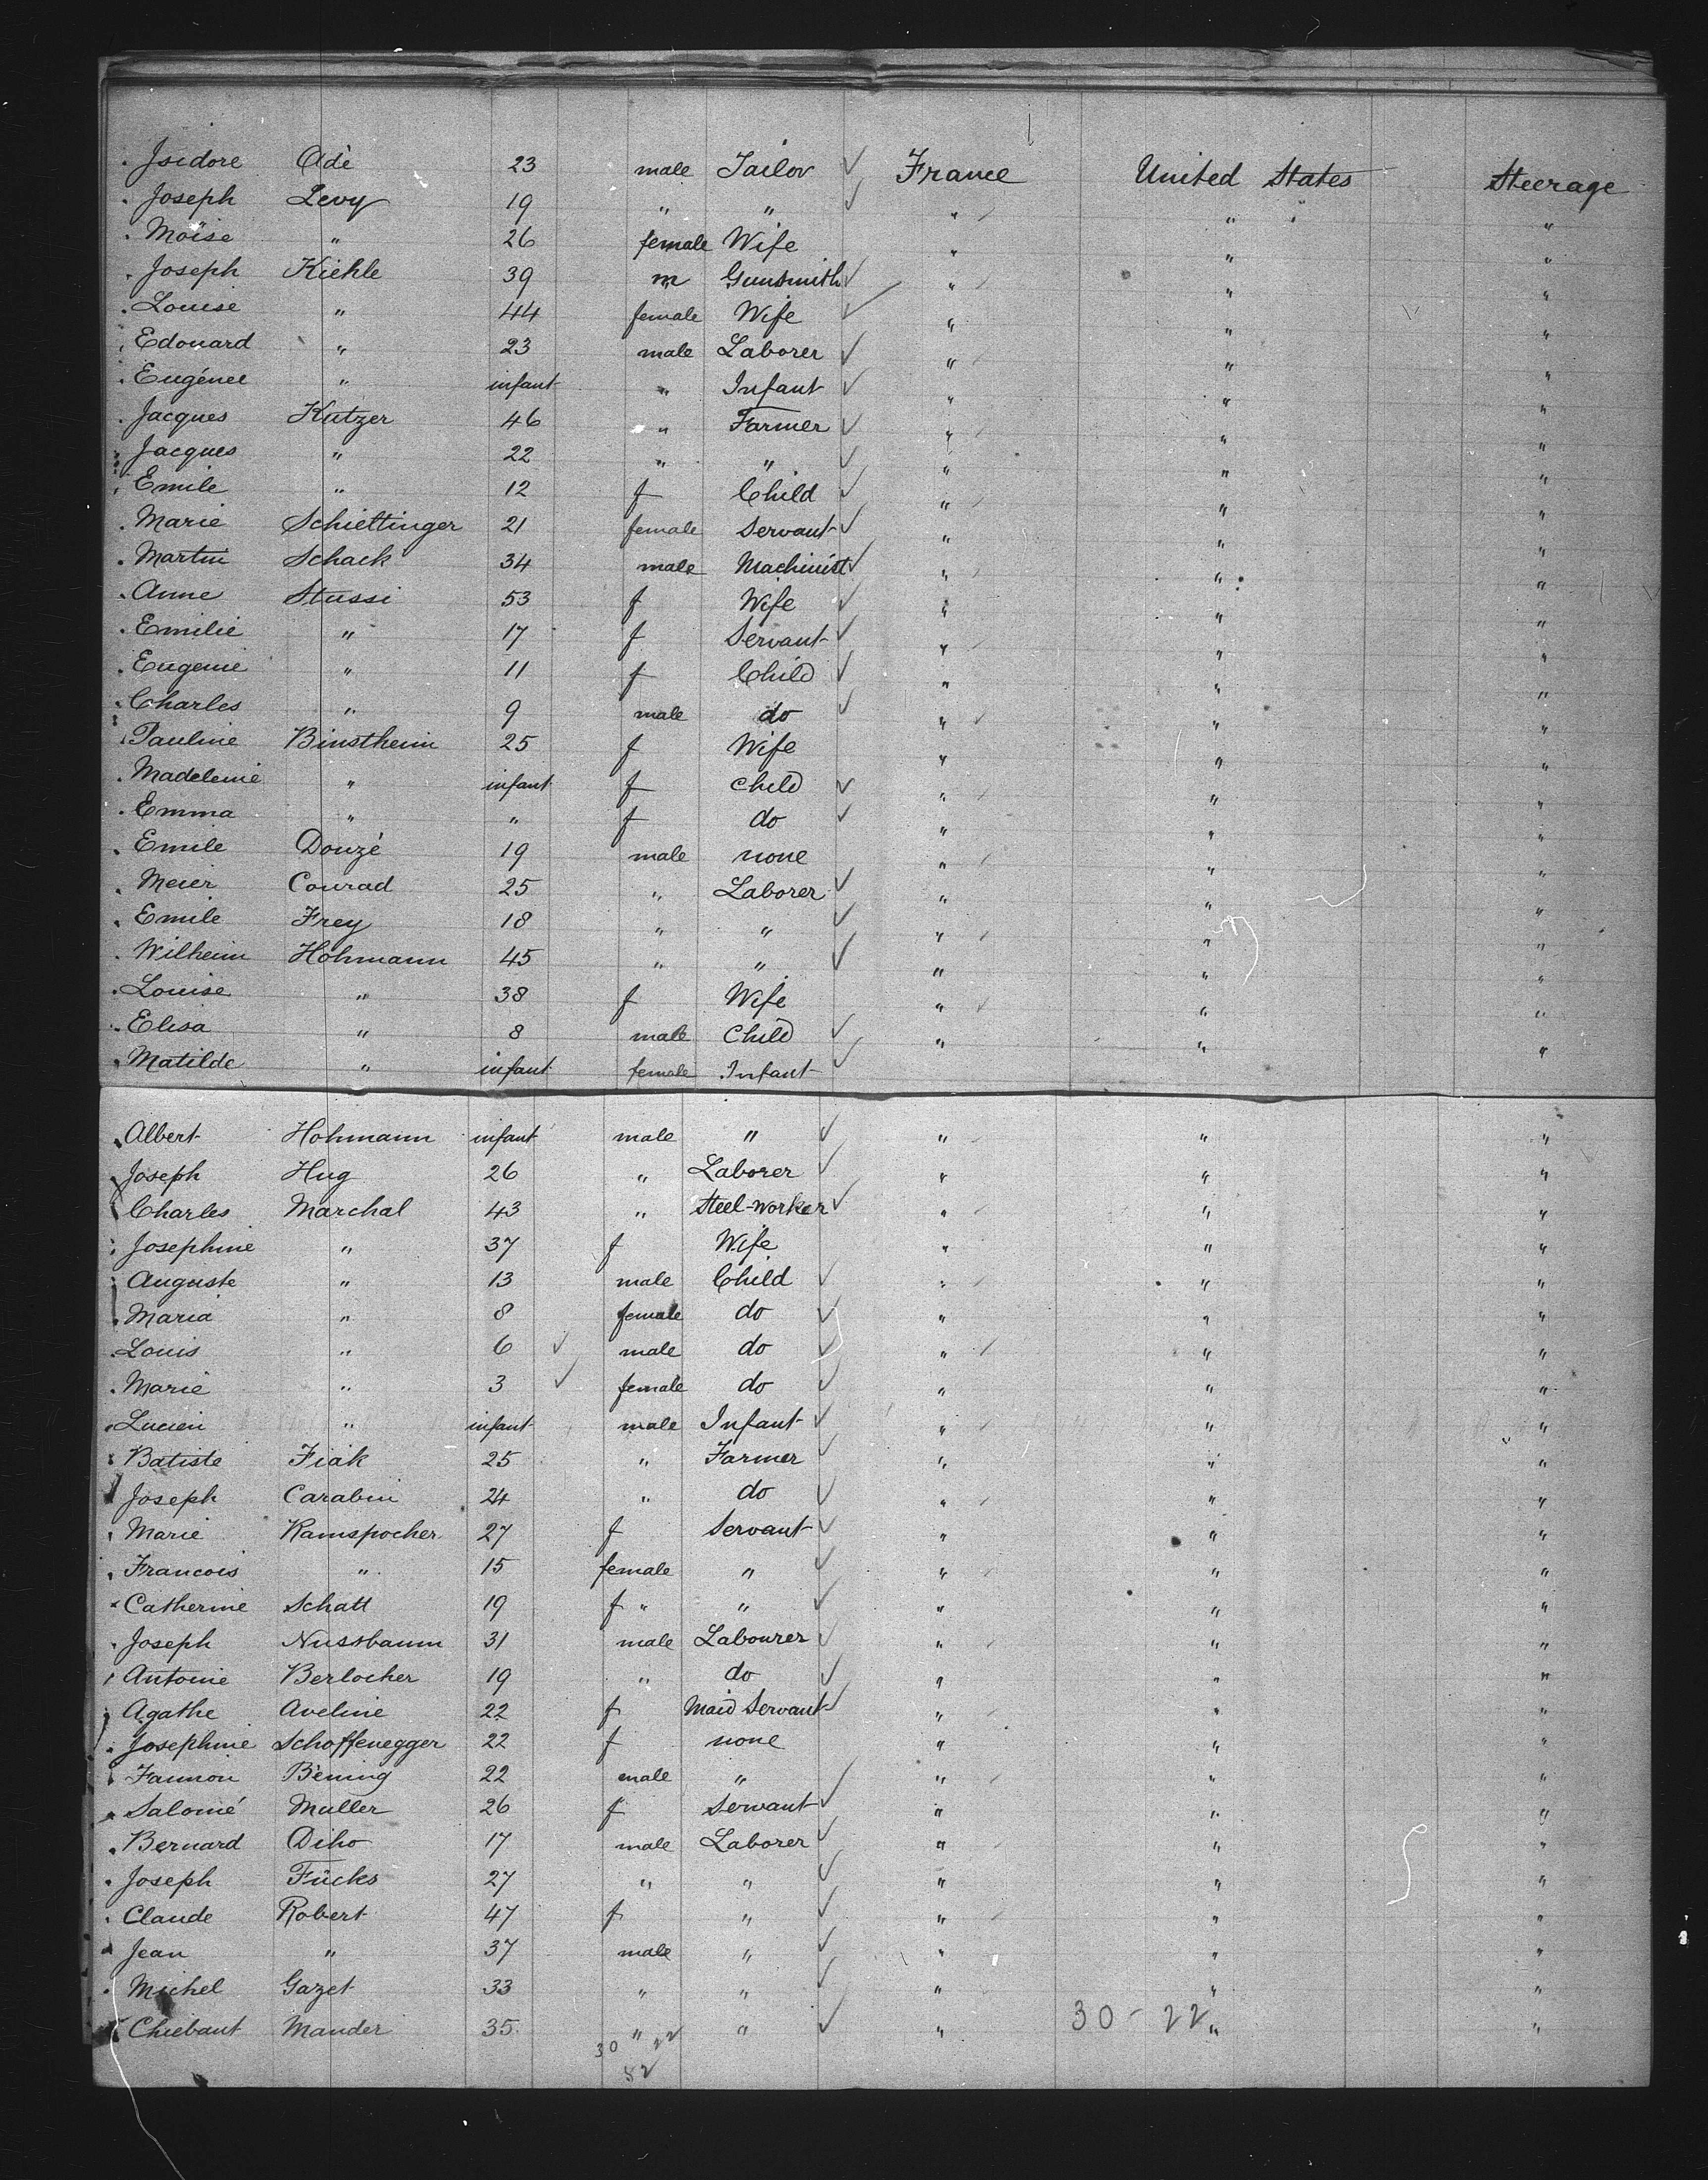 Isidore Adè 23 male Tailor France United States Steerage
Joseph Levy 19 " " " " "
Moïse " 26 female Wife " " "
Joseph Kiehle 39 m Gunsmith " " "
Louise " 44 female Wife " " "
Edouard " 23 male Laborer " " "
Eugénee " infant " Infant " " "
Jacques Kutzer 46 " Farmer " " "
Jacques " 22 " " " " "
Emile " 12 f Child " " "
Marie Schiettinger 21 female Servant " " "
Martin Schack 34 male Machinist " " "
Anne Stussi 53 f Wife " " "
Emilie " 17 f Servant " " "
Eugenie " 11 f Child " " "
Charles " 9 male do " " "
Pauline Binstheim 25 f Wife " " "
Madeleine " infant f child " " "
Emma " " f do " " "
Emile Douzé 19 male none " " "
Meier Conrad 25 " Laborer " " "
Emile Frey 18 " " " " "
Wilheim Hohmann 45 " " " " "
Louise " 38 f Wife " " "
Elisa " 8 male Child " " "
Matilde " infant female Infant " " "
Albert Hohmann infant male " " " "
Joseph Hug 26 " Laborer " " "
Charles Marchal 43 " Steel-worker " " "
Josephine " 37 f Wife " " "
Auguste " 13 male Child " " "
Maria " 8 female do " " "
Louis " 6 male do " " "
Marie " 3 female do " " "
Lucien " infant male Infant " " "
Batiste Fiak 25 " Farmer " " "
Joseph Carabin 24 " do " " "
Marie Ramspocher 27 f Servant " " "
Francois " 15 female " " " "
Catherine Schatt 19 f " " " " "
Joseph Nussbaum 31 male Labourer " " "
Antoine Berlocher 19 " do " " "
Agathe Aveline 22 f Maid Servant " " "
Josephine Schoffenegger 22 f none " " "
Fannon Bèning 22 male " " " "
Salomé Muller 26 f Servant " " "
Bernard Diho 17 male Laborer " " "
Joseph Fücks 27 " " " " "
Claude Robert 47 f " " " "
Jean " 37 male " " " "
Michel Gazet 33 " " " " "
Chiebaut Mander 35 " " " 30-22 " "
30 22
52